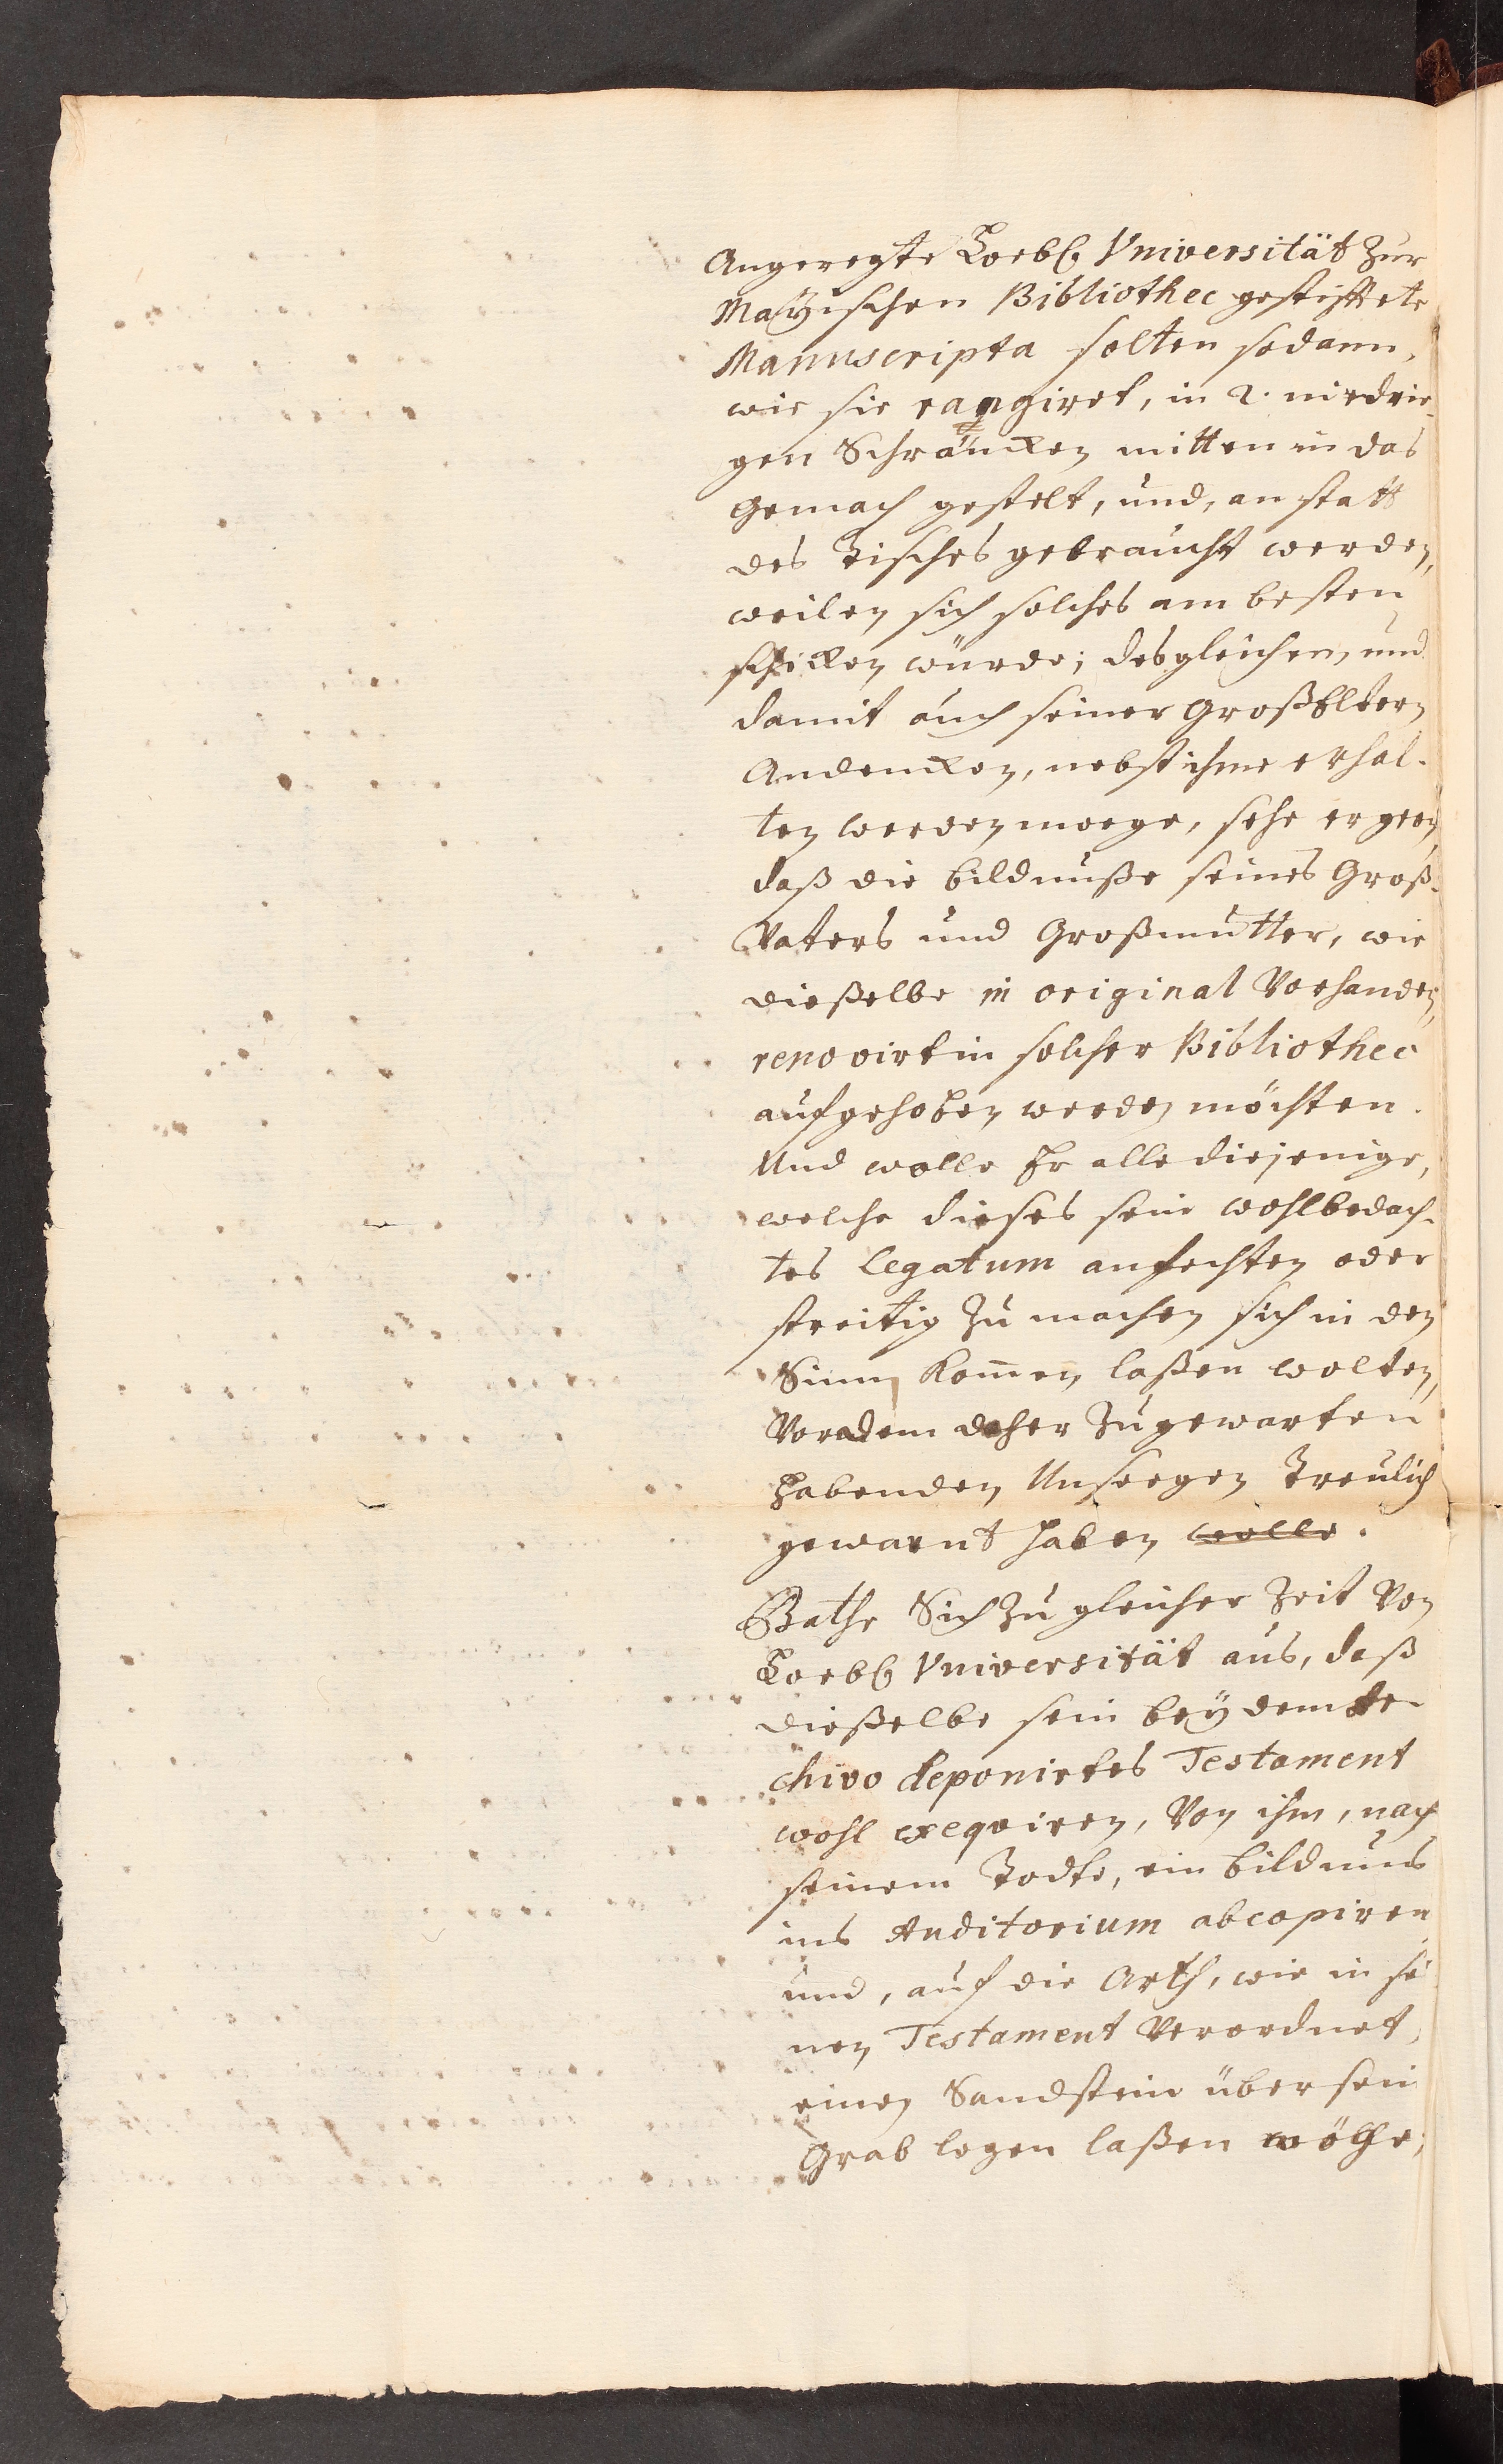 Angeregte Loebl Vniversität zur
Mayischen Bibliothec gestifftete
Manuscripta solten sodann,
wie sie rangiret, in 2. niedrie-
gen Schräncken mitten in das
Gemach gestelt, und, an statt
des Tisches gebraucht werden,
weilen sich solches am besten
schicken würde; desgleichen, und
damit auch seiner GroßEltern
Andencken, nebst ihme erhal-
ten werden moege, sehe er gern,
daß die bildnuße seines Groß-
Vaters und Großmutter, wie
dieselbe in original Vorhanden,
renovirt in solcher Bibliothec
aufgehoben werden möchten.
Und wolle Er alle diejenige,
welche dieses sein wohlbedach-
tes Legatum anfechten oder
streitig zu machen sich in den
Sinn kom̄en laßen wolten,
Vor dem daher zugewarten
habenden Unseegen Treulich
gewarnt haben wolle.
Bathe Sich zu gleicher Zeit Von
Loebl Vniversität aus, daß
dieselbe sein bey dem Ar-
chivo deponirtes Testament
wohl exeqviren, Von ihm, nach
seinem Todte, ein bildnus
ins Auditorium abcopiren
und, auf die Arth, wie in sei
nen Testament Verordnet,
einen Sandstein über sein
Grab legen laßen wölle;